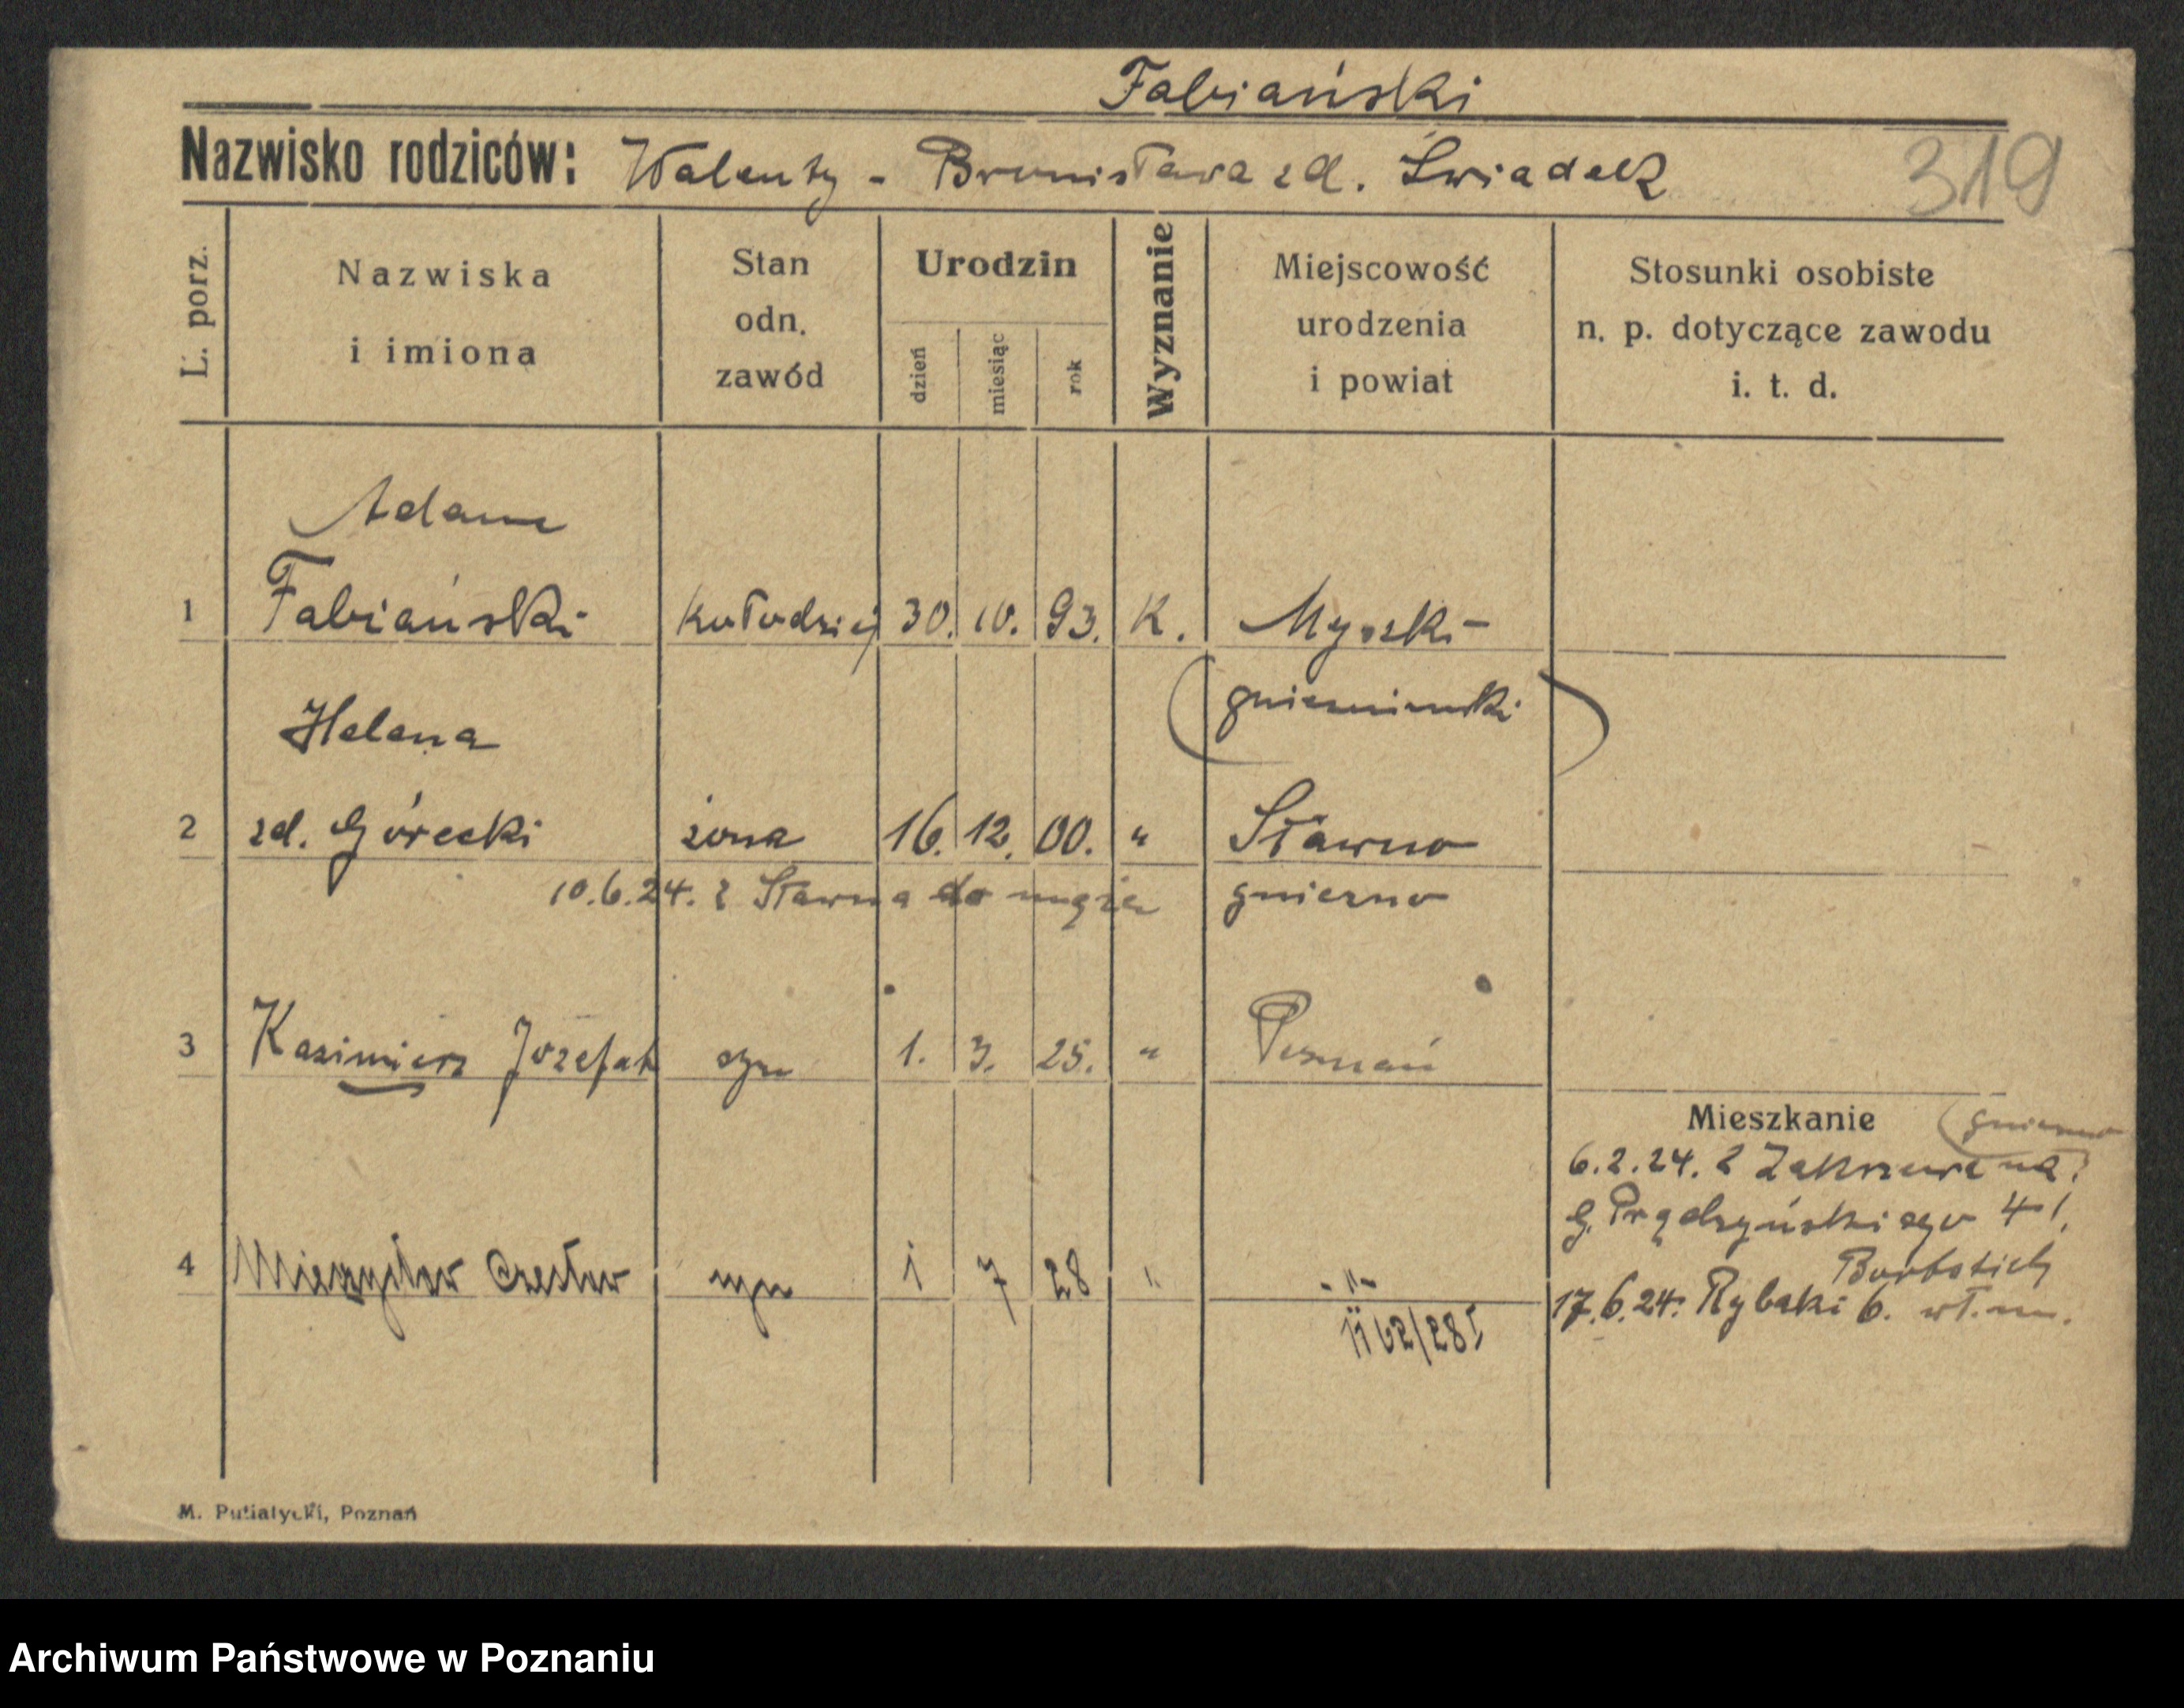 Fabiański
Nazwisko rodziców: Walenty - Bronisława zd. Świadek
319
L. porz.
Nazwiska
i imiona
Stan
odn.
zawód
Urodzin
dzień
miesiąc
rok
Wyznanie
Miejscowość
urodzenia
i powiat
Stosunki osobiste
n. p. dotyczące zawodu
i. t. d.
Adam
1 Fabiański kołodziej 30. 10. 93. K. Myszki -
(gnieznienski)
Helena
2 zd. Górecki żona 16. 12. 00. " Sławno
10.6.24. z Sławna do męża gniezno
3 Kazimierz Jozefat syn 1. 3. 25. " Poznań
Mieszkanie (gniezno
6.2.24. z Zakrzewa na
G. Prądzyńskiego 41.
4 Mieczysław Czesław syn 1 7 28 " -"-
17.6.24. Rybaki 6. wł. m.
1162/28I
M. Putiatycki, Poznań
Archiwum Państwowe w Poznaniu